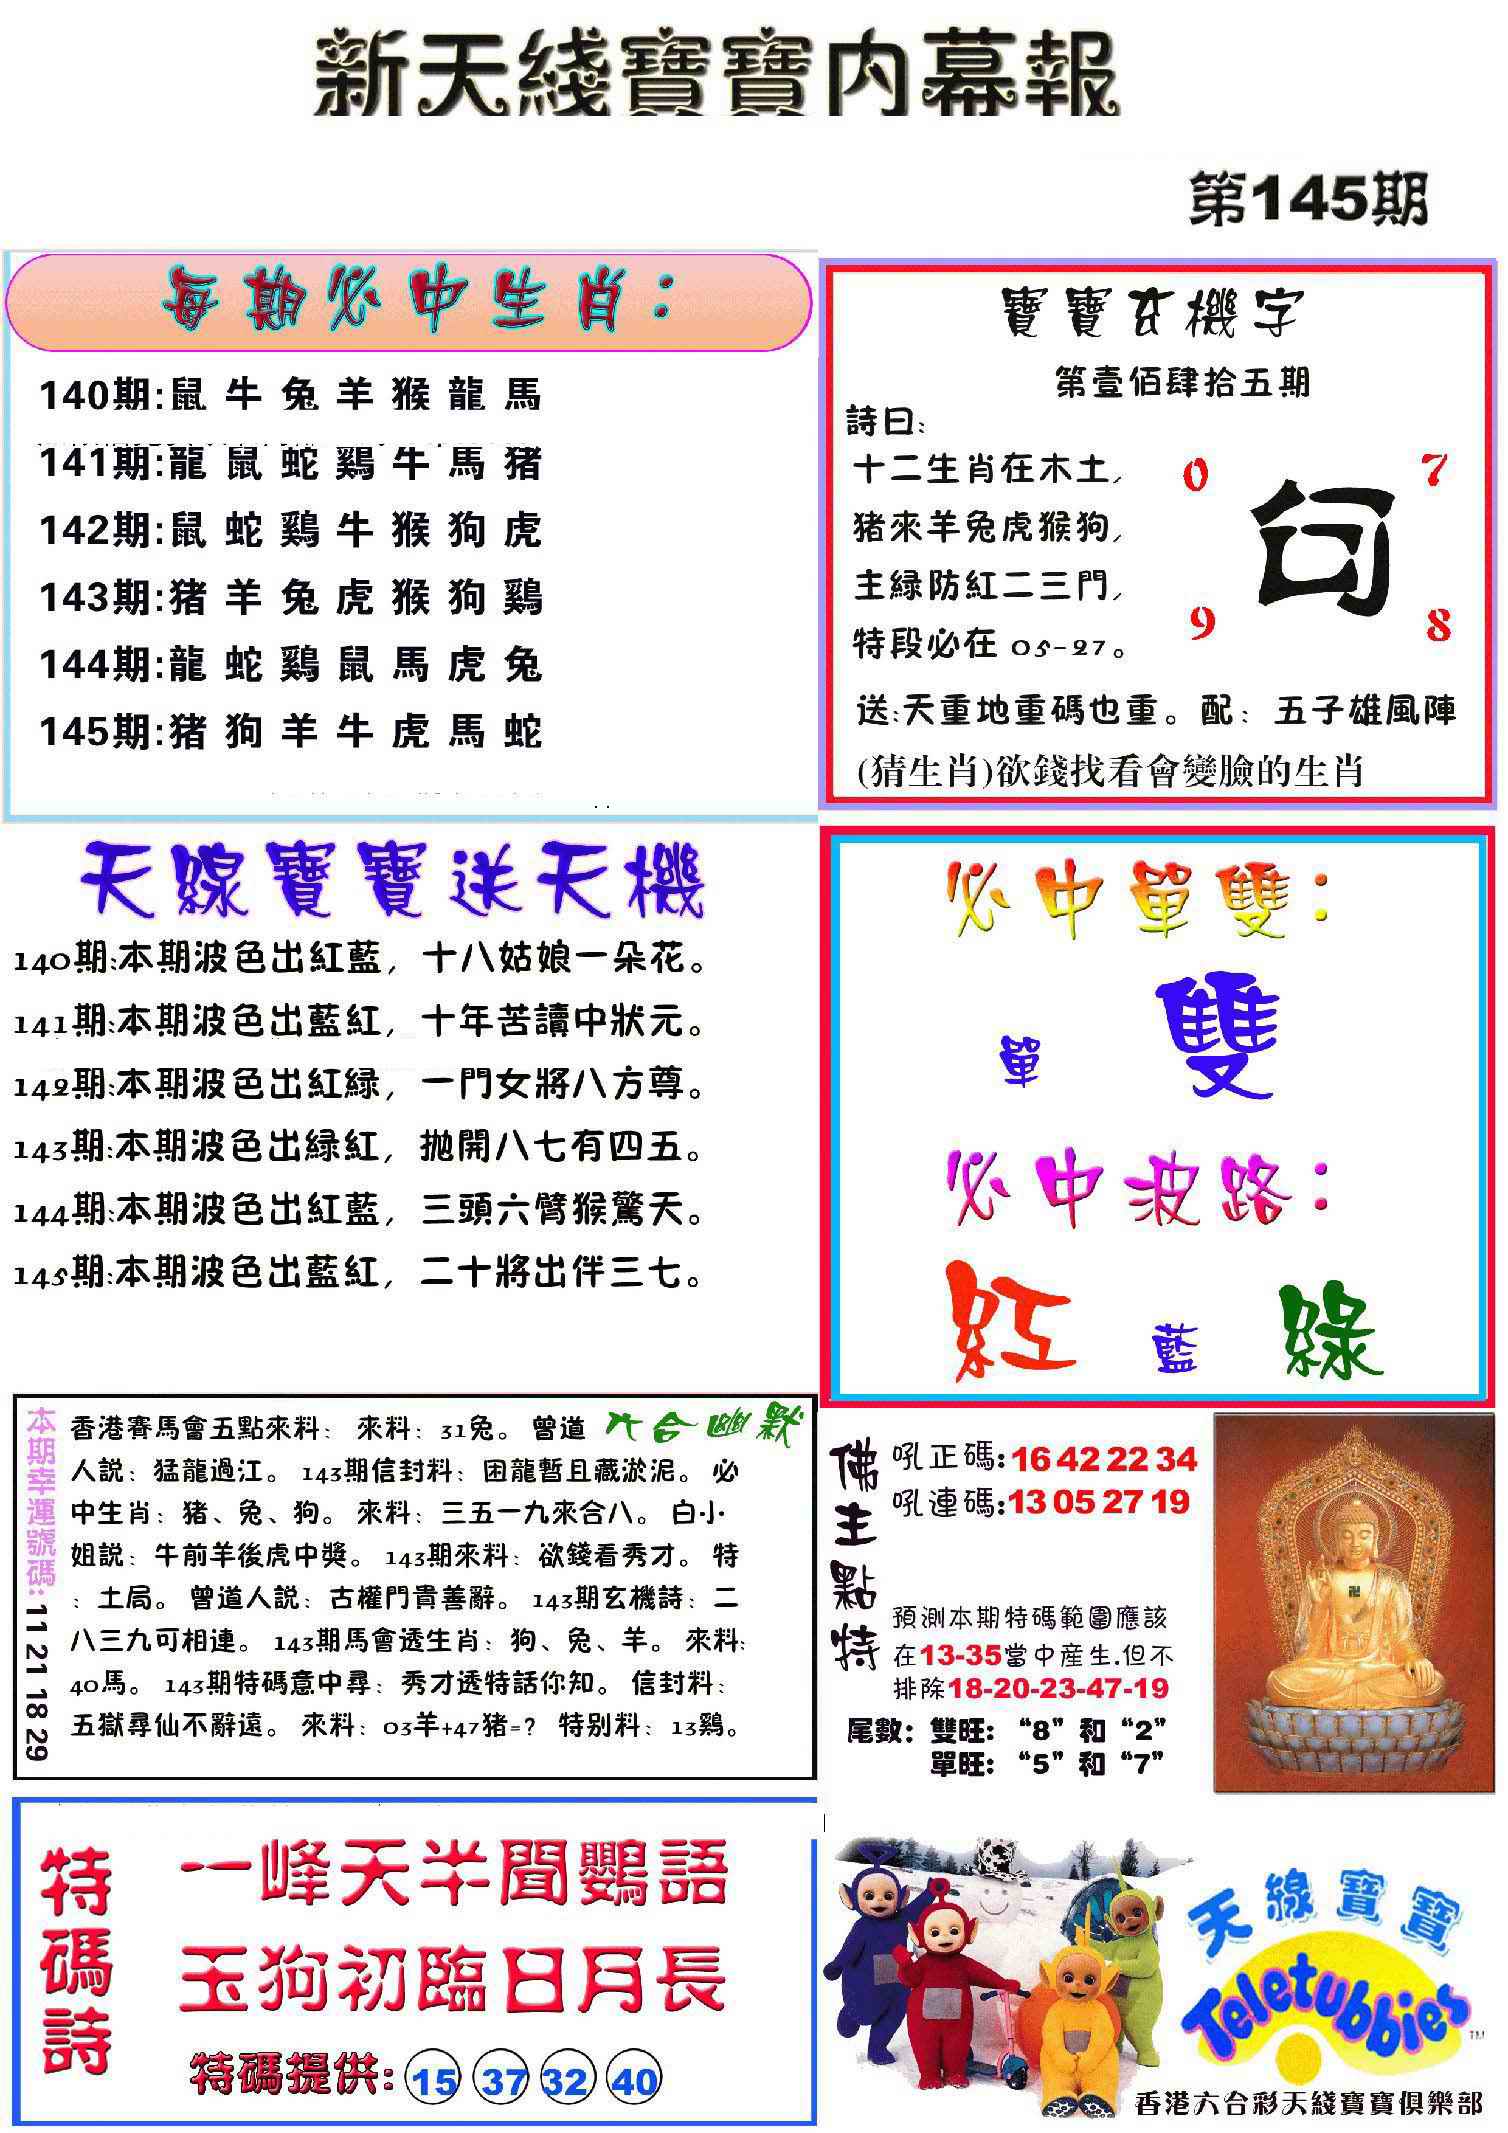 新天綫寶寶内幕報
第145期
每期必中生肖：
140期:鼠 牛 兔 羊 猴 龍 馬
141期:龍 鼠 蛇 鷄 牛 馬 猪
142期:鼠 蛇 鷄 牛 猴 狗 虎
143期:猪 羊 兔 虎 猴 狗 鷄
144期:龍 蛇 鷄 鼠 馬 虎 兔
145期:猪 狗 羊 牛 虎 馬 蛇
寶寶玄機字
第壹佰肆拾五期
詩曰:
十二生肖在木土,
猪來羊兔虎猴狗,
主緑防紅二三門,
特段必在 05-27。
0 7
句
9 8
送:天重地重碼也重。配：五子雄風陣
(猜生肖)欲錢找看會變臉的生肖
天線寶寶送天機
140期:本期波色出紅藍, 十八姑娘一朵花。
141期:本期波色出藍紅, 十年苦讀中狀元。
142期:本期波色出紅緑, 一門女將八方尊。
143期:本期波色出緑紅, 拋開八七有四五。
144期:本期波色出紅藍, 三頭六臂猴驚天。
145期:本期波色出藍紅, 二十將出伴三七。
必中單雙：
單 雙
必中波路：
紅 藍 綠
本期幸運號碼: 11 21 18 29
六合幽默
香港賽馬會五點來料： 來料：31兔。 曾道
人説：猛龍過江。 143期信封料：困龍暫且藏淤泥。 必
中生肖：猪、兔、狗。 來料：三五一九來合八。 白小
姐説：牛前羊後虎中獎。 143期來料：欲錢看秀才。 特
：土局。 曾道人説：古權門貴善辭。 143期玄機詩：二
八三九可相連。 143期馬會透生肖：狗、兔、羊。 來料:
40馬。 143期特碼意中尋：秀才透特話你知。 信封料：
五獄尋仙不辭遠。 來料：03羊+47猪=? 特别料：13鷄。
佛主點特
吼正碼:16 42 22 34
吼連碼:13 05 27 19
預測本期特碼範圍應該
在13-35當中産生.但不
排除18-20-23-47-19
尾數：雙旺：“8”和“2”
單旺：“5”和“7”
特碼詩
一峰天半聞鸚語
玉狗初臨日月長
特碼提供: 15 37 32 40
天線寶寶
Teletubbies
TM
香港六合彩天綫寶寶俱樂部